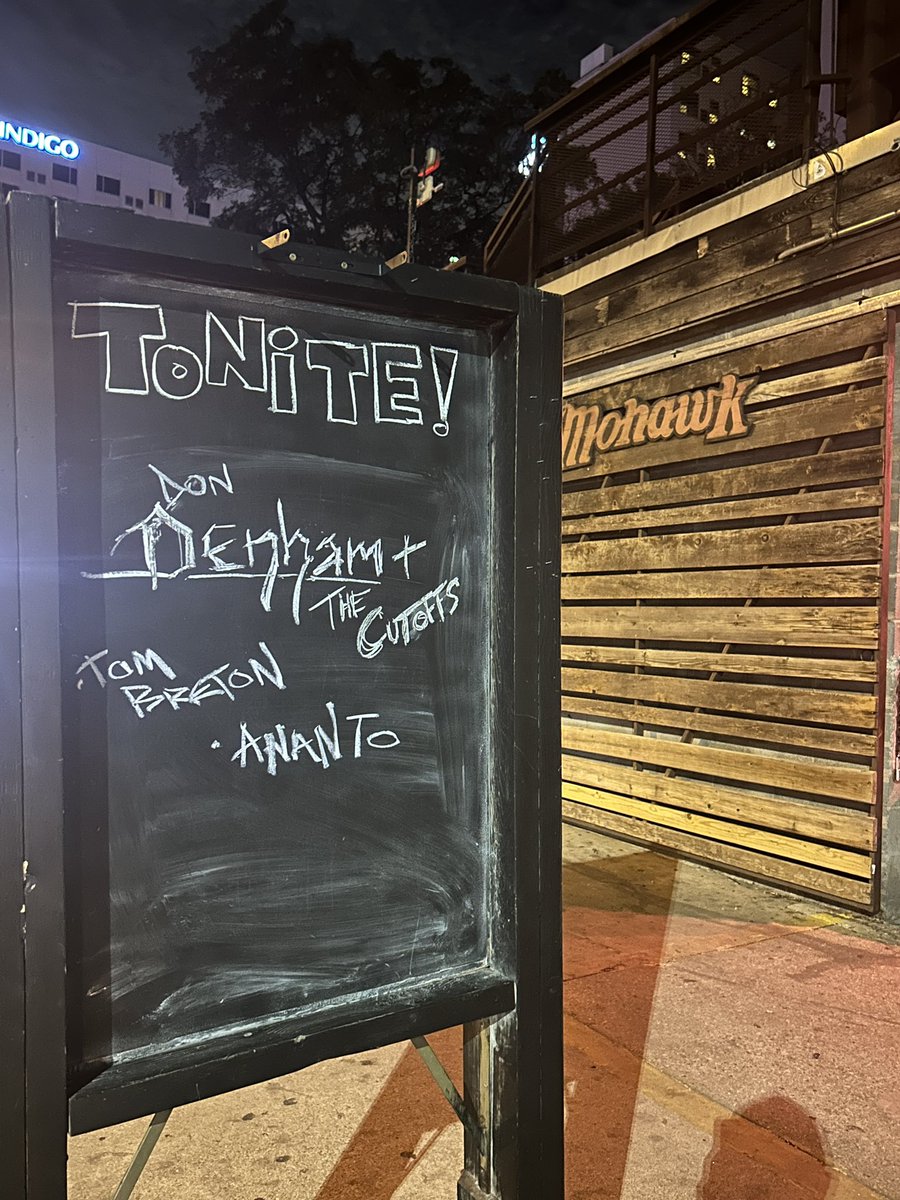 INDIGO
TONiTE!
DON
Denham +
THE
CUTOFFS
TOM
BRETON
· ANANTO
Mohawk